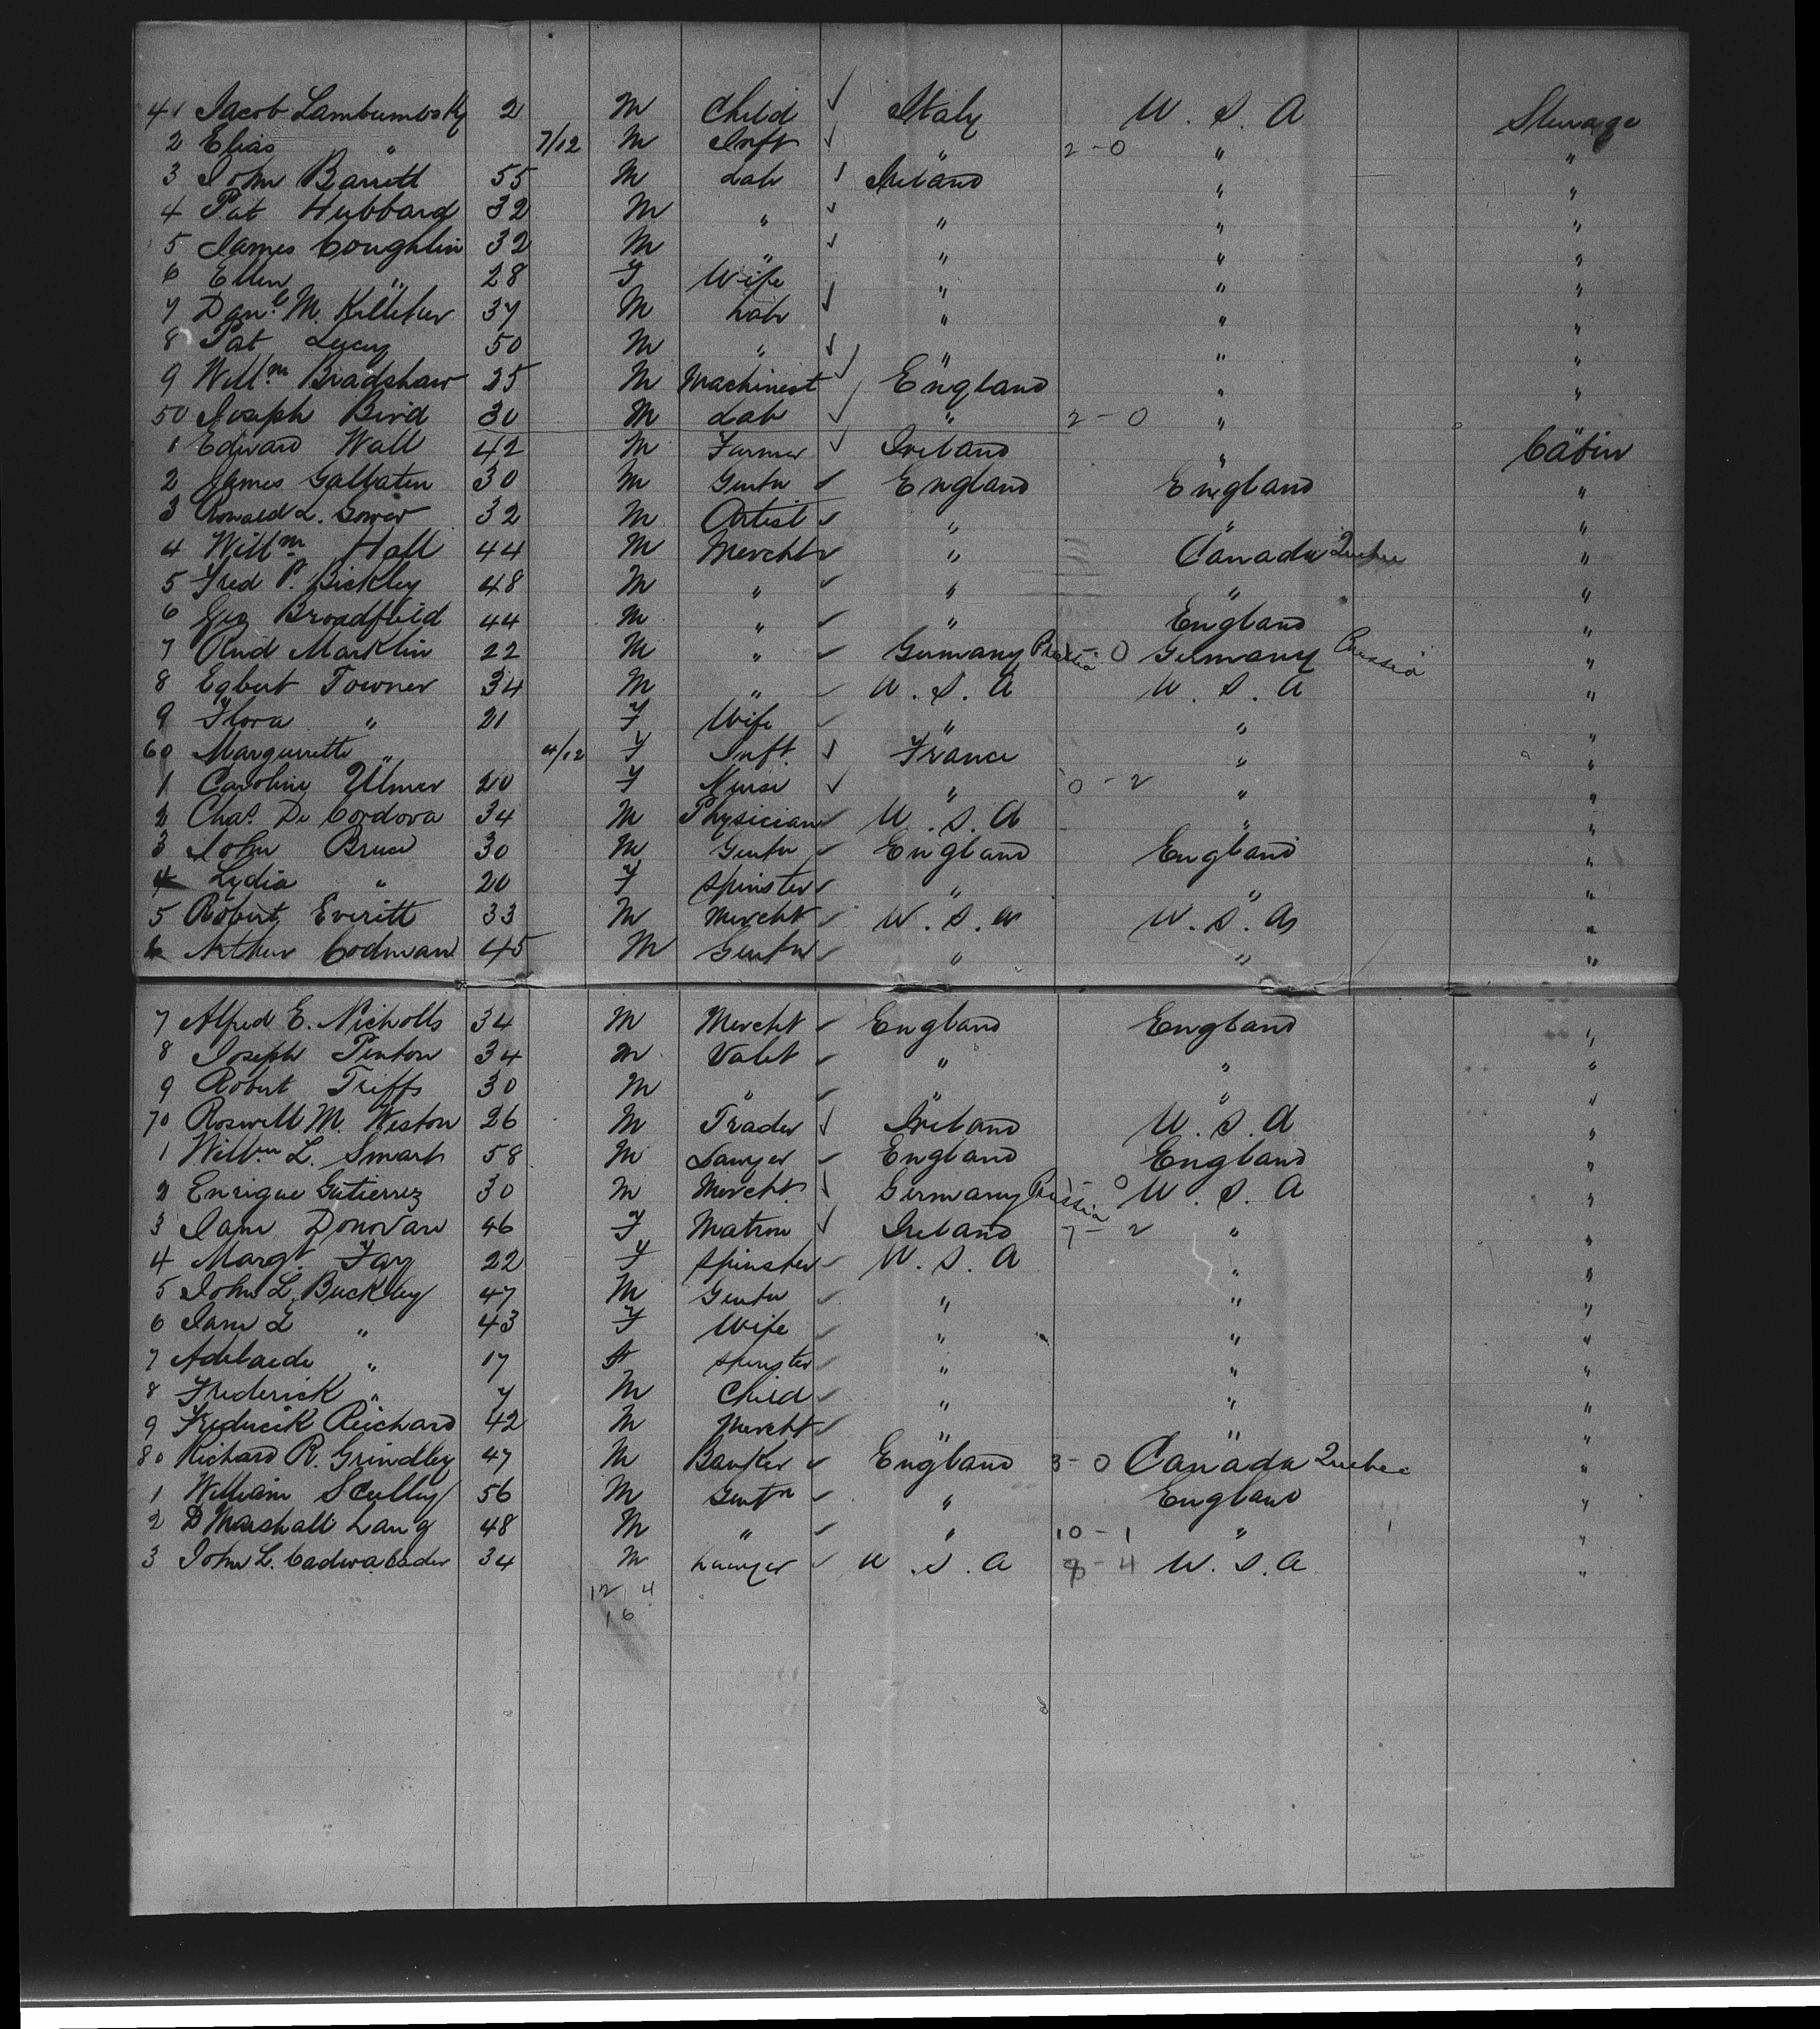 41 Jacob Lambumbsky 2 M Child ✓ Italy U.S.A Steerage
2 Elias " 7/12 M Inft ✓ " 2-0 " "
3 John Barrett 55 M Lab ✓ Ireland " "
4 Pat Hubbard 32 M " ✓ " " "
5 James Coughlin 32 M " ✓ " " "
6 Ellen " 28 F Wife " " "
7 Danl. M. Killiher 37 M Lab ✓ " " "
8 Pat Lucey 50 M " ✓ " " "
9 Willm Bradshaw 25 M Machinest ✓ England " "
50 Joseph Bird 30 M Lab ✓ " 2-0 "
1 Edward Wall 42 M Farmer ✓ Ireland " Cabin
2 James Gallaten 30 M Gentn ✓ England England "
3 Ronald L. Gower 32 M Artist ✓ " " "
4 Willm Hall 44 M Mercht ✓ " Canada Quebec "
5 Fred P. Bickley 48 M " ✓ " " "
6 Geo Broadfield 44 M " ✓ " England "
7 Rud Marklin 22 M " ✓ Germany Prussia - 0 Germany Prussia "
8 Egbert Towner 34 M " ✓ U.S.A U.S.A "
9 Flora " 21 F Wife ✓ " " "
60 Marguerette " 4/12 F Inft. ✓ France " "
1 Caroline Ulmer 20 F Nurse ✓ " 0-2 " "
2 Chas. De Cordova 34 M Physician ✓ U.S.A " "
3 John Bruce 30 M Gentn ✓ England England "
4 Lydia " 20 F Spinster ✓ " " "
5 Robert Everitt 33 M Mercht ✓ U.S.A U.S.A "
6 Arthur Codman 45 M Gentn ✓ " " "
7 Alfred E. Nicholls 34 M Mercht ✓ England England "
8 Joseph Penton 34 M Valet ✓ " " "
9 Robert Triffs 30 M " ✓ " " "
70 Roswell M. Weston 26 M Trader ✓ Ireland U.S.A "
1 Willm L. Smart 58 M Lawyer ✓ England England "
2 Enrique Gutierrez 30 M Mercht. ✓ Germany Prussia - 0 U.S.A "
3 Jane Donovan 46 F Matron ✓ Ireland 7-2 " "
4 Margt. Fay 22 F Spinster ✓ U.S.A " "
5 John L. Buckley 47 M Gentn ✓ " " "
6 Jane L " 43 F Wife ✓ " " "
7 Adelaide " 17 F Spinster ✓ " " "
8 Frederick " 7 M Child ✓ " " "
9 Frederick Reichard 42 M Mercht ✓ " " "
80 Richard R. Grindley 47 M Banker ✓ England 3-0 Canada Quebec "
1 William Scully 56 M Gentn ✓ " England "
2 D Marshall Lang 48 M " ✓ " 10-1 " "
3 John L. Cadwalader 34 M Lawyer ✓ U.S.A 4 U.S.A "
12 4
16